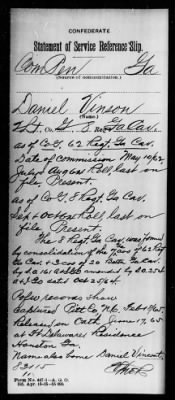 CONFEDERATE
Statement of Service Reference Slip.
Com Pen Ga
(Source of communication.)
Daniel Vinson
(Name.)
1 Lt. Co. G. 8 Ga Cav.
as of Co. G, 62 Regt. Ga Cav.
Date of Commission May 10/62
July & Aug 64 Roll, last on
file, Present.
As of Co. G, 8 Regt. Ga Cav.
Sept & Oct 64 Roll, last on
file Present.
The 8 Regt. Ga Cav. was formed
by consolidation of the 7 cos 62 Regt
Ga Cav. & 3 cos of 20 Batt. Ga Cav.
by S.O. 161 as amended by S.O. 254
Oct 25/64.
Union records show
Captured Pitt Co, N.C. Feb 18/65.
Released on Oath June 17, 65
at Ft. Delaware Residence
Houston Ga.
Name also borne Daniel Vincent.
82115